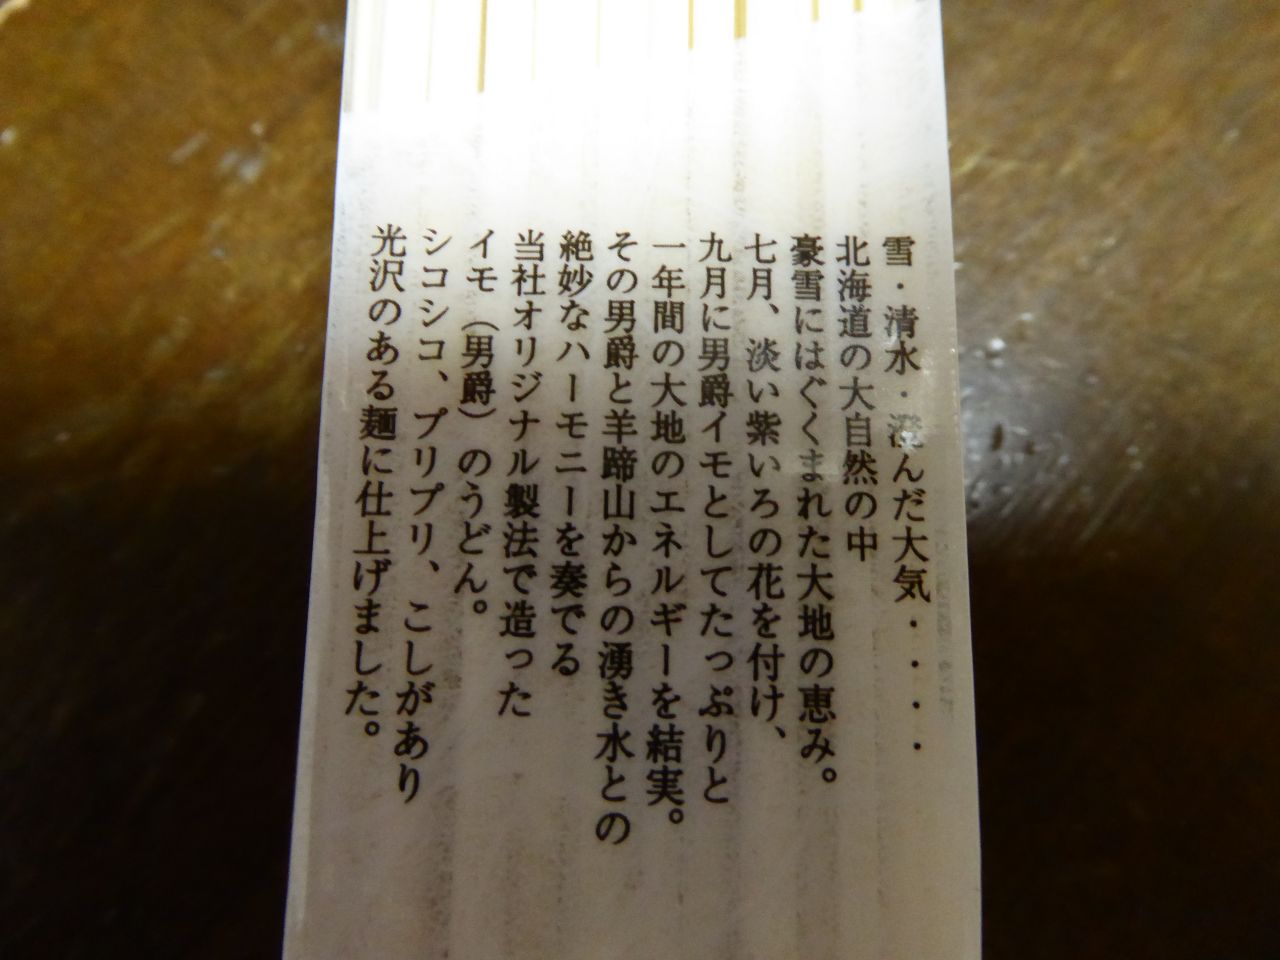 雪・清水・澄んだ大気・・・・
北海道の大自然の中
豪雪にはぐくまれた大地の恵み。
七月、淡い紫いろの花を付け、
九月に男爵イモとしてたっぷりと
一年間の大地のエネルギーを結実。
その男爵と羊蹄山からの湧き水との
絶妙なハーモニーを奏でる
当社オリジナル製法で造った
イモ（男爵）のうどん。
シコシコ、プリプリ、こしがあり
光沢のある麺に仕上げました。